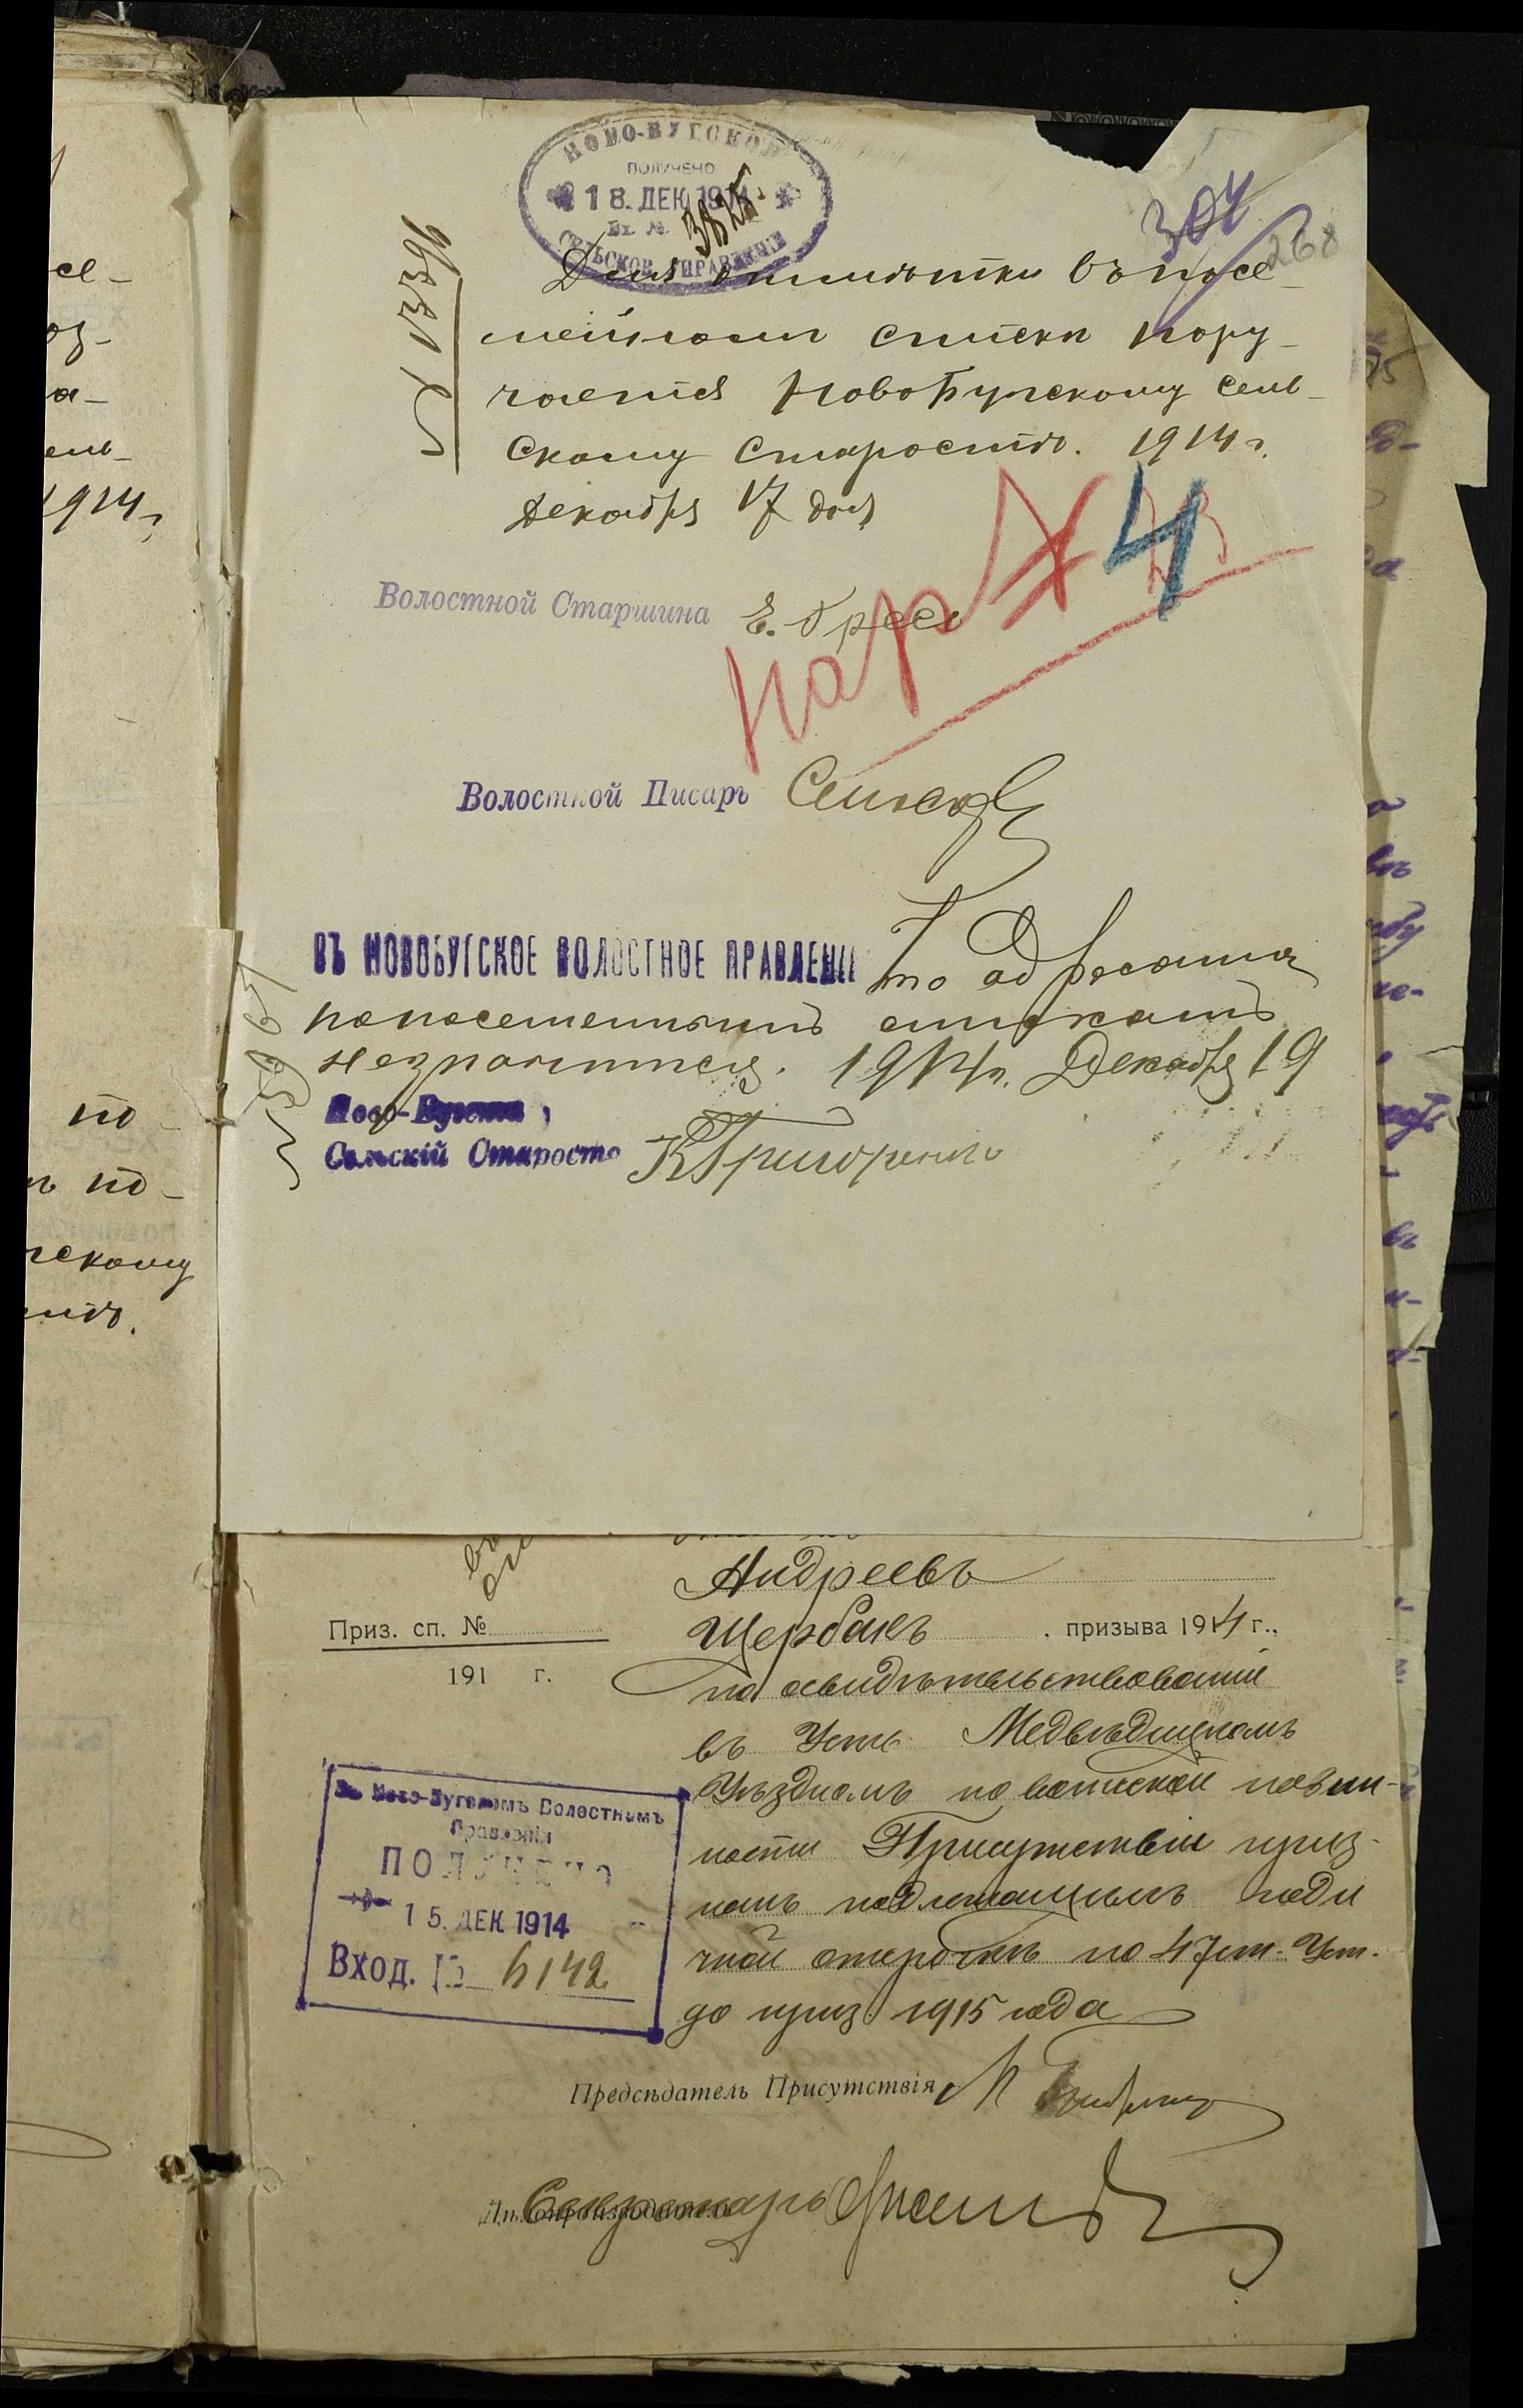 НОВО-БУГСКОЕ
ПОЛУЧЕНО
18. ДЕК 1914
Вх. №
3825
СЕЛЬСКОЕ УПРАВЛЕНІЕ
304
268
Для отмѣтки въ посе-
мейном списки пору-
чается НовоБугскому сель-
скому Старостѣ. 1914 г.
Декабря 17 дня
4
Волостной Старшина
Волостной Писарь
ВЪ НОВОБУГСКОЕ ВОЛОСТНОЕ ПРАВЛЕНІЕ
незначится. 1914 г. Декабря 19
Ново-Бугскій
Сельскій Староста КГригоренко
Андреевъ
Приз. сп. №
Щербакъ призыва 1914 г.,
191 г.
по освидѣтельствованіи
въ Усть Медвѣдицкомъ
Уѣздномъ по воинской повин-
ности Присутствіи приз-
нанъ подлежащимъ годи
чной отсрочкѣ по 47 ст. Уст.
до приз. 1915 года
Въ Ново-Бугскомъ Волостномъ
Правленіи
ПОЛУЧЕНО
15. ДЕК 1914
Вход. № 6142
Предсѣдатель Присутствія
Секретарь
се-
оз-
а-
ель-
1914 г.
по-
по-
гскому